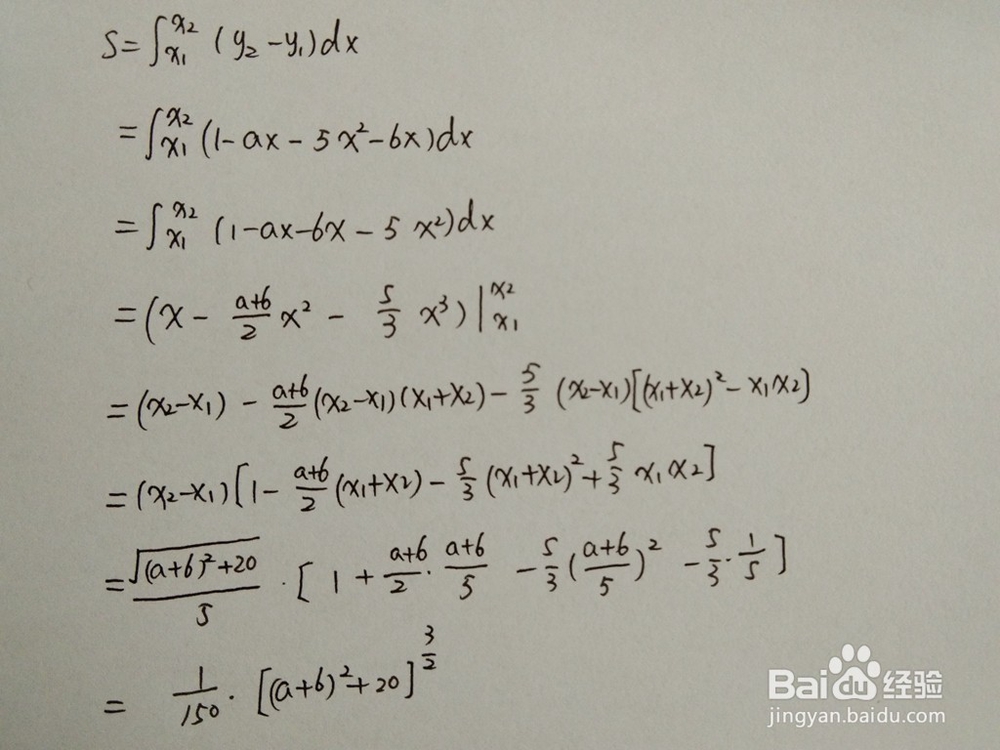 S=∫_{x1}^{x2} (y₂-y₁)dx
=∫_{x1}^{x2} (1-ax-5x²-6x)dx
=∫_{x1}^{x2} (1-ax-6x-5x²)dx
=(x - \frac{a+6}{2}x² - \frac{5}{3}x³)|_{x1}^{x2}
=(x2-x1) - \frac{a+6}{2}(x2-x1)(x1+x2) - \frac{5}{3}(x2-x1)[(x1+x2)²-x1x2]
=(x2-x1)[1-\frac{a+6}{2}(x1+x2)-\frac{5}{3}(x1+x2)²+\frac{5}{3}x1x2]
=\frac{\sqrt{(a+6)²+20}}{5}·[1+\frac{a+6}{2}·\frac{a+6}{5}-\frac{5}{3}(\frac{a+6}{5})²-\frac{5}{3}·\frac{1}{5}]
=\frac{1}{150}·[(a+6)²+20]^{\frac{3}{2}}
Baidu经验
jingyan.baidu.com